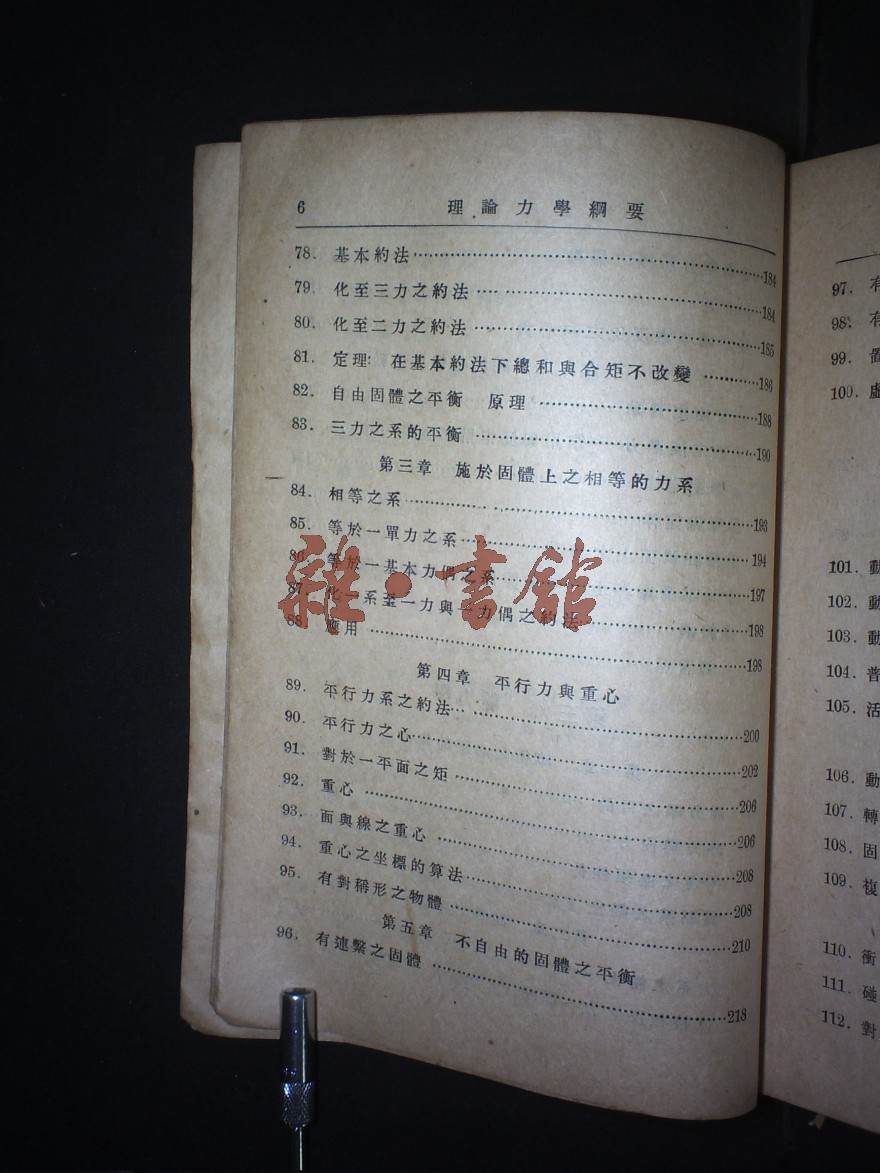 6 理論力學綱要
78. 基本約法……184
79. 化至三力之約法……184
80. 化至二力之約法……185
81. 定理: 在基本約法下總和與合矩不改變……186
82. 自由固體之平衡 原理……188
83. 三力之系的平衡……190
第三章 施於固體上之相等的力系
84. 相等之系……193
85. 等於一單力之系……194
86. 等於一基本力偶之系……197
87. 化一系至一力與一力偶之約法……198
88. 應用……198
第四章 平行力與重心
89. 平行力系之約法……200
90. 平行力之心……202
91. 對於一平面之矩……206
92. 重心……206
93. 面與線之重心……208
94. 重心之坐標的算法……208
95. 有對稱形之物體……210
第五章 不自由的固體之平衡
96. 有連繫之固體……218
雜·書館
97. 有
98. 有
99.
100. 虛
101. 動
102. 動
103. 動
104. 普
105. 活
106. 動
107. 轉
108. 固
109. 複
110. 衝
111. 碰
112. 對